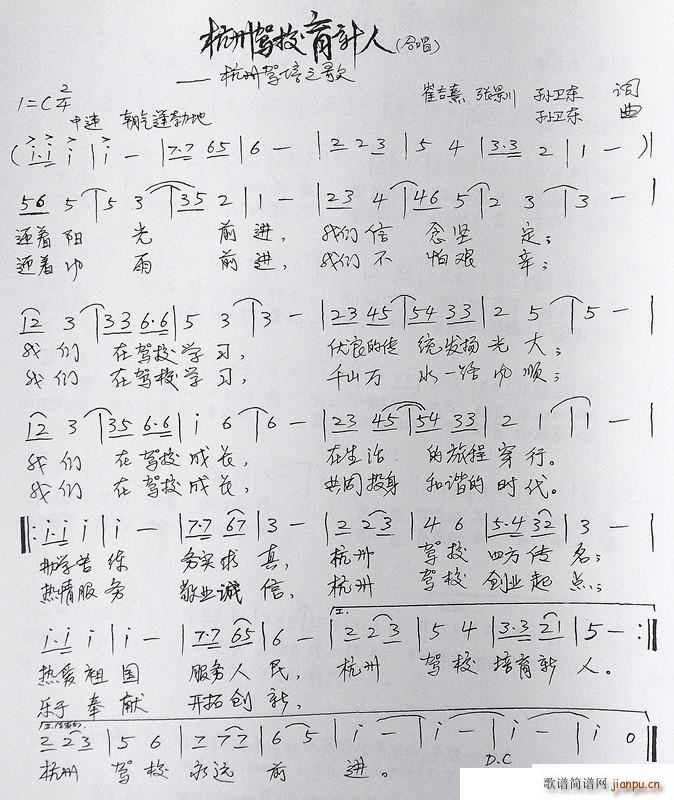 杭州驾校育新人(合唱)
——杭州驾培之歌
1=C 2/4
崔言熹 张景川 孙卫东 词
孙卫东 曲
中速 朝气蓬勃地
(i·i i | i - | 7·7 65 | 6 - | 2 2 3 | 5 4 | 3·3 2 | 1 - )|
56 5 | 5 3 | 35 2 | 1 - | 23 4 | 46 5 | 2 3 | 3 - |
迎着阳光前进，我们信念坚定；
迎着风雨前进，我们不怕艰辛；
12 3 | 33 6·6 | 5 3 | 3 - | 23 45 | 54 33 | 2 5 | 5 - |
我们在驾校学习，优良的传统发扬光大；
我们在驾校学习，千山万水一路风顺；
12 3 | 35 6·6 | i 6 | 6 - | 23 45 | 54 33 | 2 1 | 1 - |
我们在驾校成长，在生活的旅程穿行。
我们在驾校成长，共同投身和谐的时代。
|: i·i i | i - | 7·7 67 | 3 - | 2 2 3 | 4 6 | 5·4 32 | 3 - |
勤学苦练务实求真，杭州驾校四方传名；
热情服务敬业诚信，杭州驾校创业起点；
i·i i | i - | 7·7 65 | 6 - | 2 2 3 | 5 4 | 3·3 21 | 5 - :|
热爱祖国服务人民，杭州驾校培育新人。
乐于奉献开拓创新，
2 2 3 | 5 6 | 7 7 7 | 6 5 | i - | i - | i - | i 0 ||
D.C
杭州驾校永远前进。
歌谱简谱网
jianpu.cn